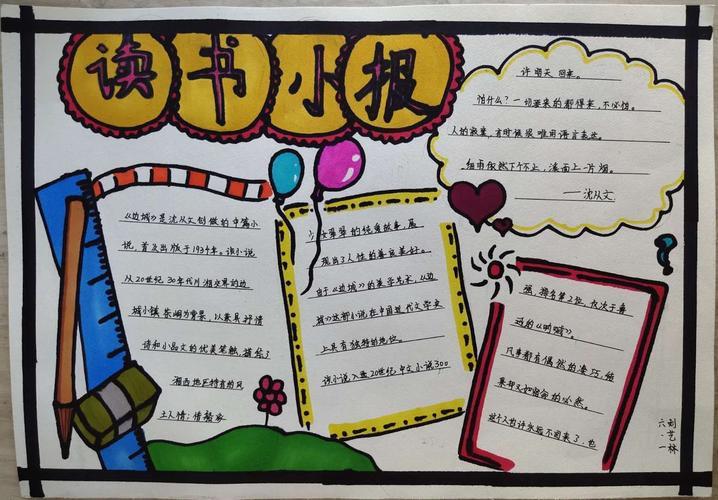 读书小报
《边城》是沈从文创做的中篇小
说,首次出版于1934年。该小说
从20世纪30年代川湘交界的边
城小镇茶峒为背景,以兼具抒情
诗和小品文的优美笔触,描绘了
湘西地区特有的风
土人情;借船家
少女翠翠的纯爱故事,展
现出了人性的善良美好。
由于《边城》的美学艺术,《边
城》这部小说在中国近代文学史
上具有独特的地位。
该小说入选20世纪中文小说100
强,排名第2位,仅次于鲁
迅的《呐喊》。
凡事都有偶然的凑巧,结
果却又如宿命的必然。
这个人也许永远不回来了,也
许明天回来。
怕什么?一切要来的都得来,不必怕。
人的寂寞,有时候很难用语言表达。
细雨依然下个不止,溪面上一片烟。
——沈从文
六·一
刘艺林